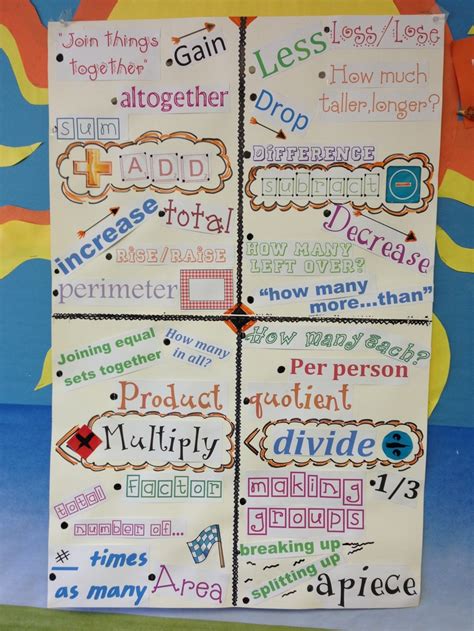 "Join things
together"
Gain
altogether
sum
ADD
increase
total
RISE/RAISE
perimeter
Less
Loss/Lose
How much
taller, longer?
Drop
DIFFERENCE
subract
Decrease
HOW MANY
LEFT OVER?
"how many
more...than"
Joining equal
sets together
How many
in all?
Product
Multiply
factor
total
number of...
# times
as many
Area
How many each?
Per person
quotient
divide
making
groups
1/3
breaking up
splitting up
apiece